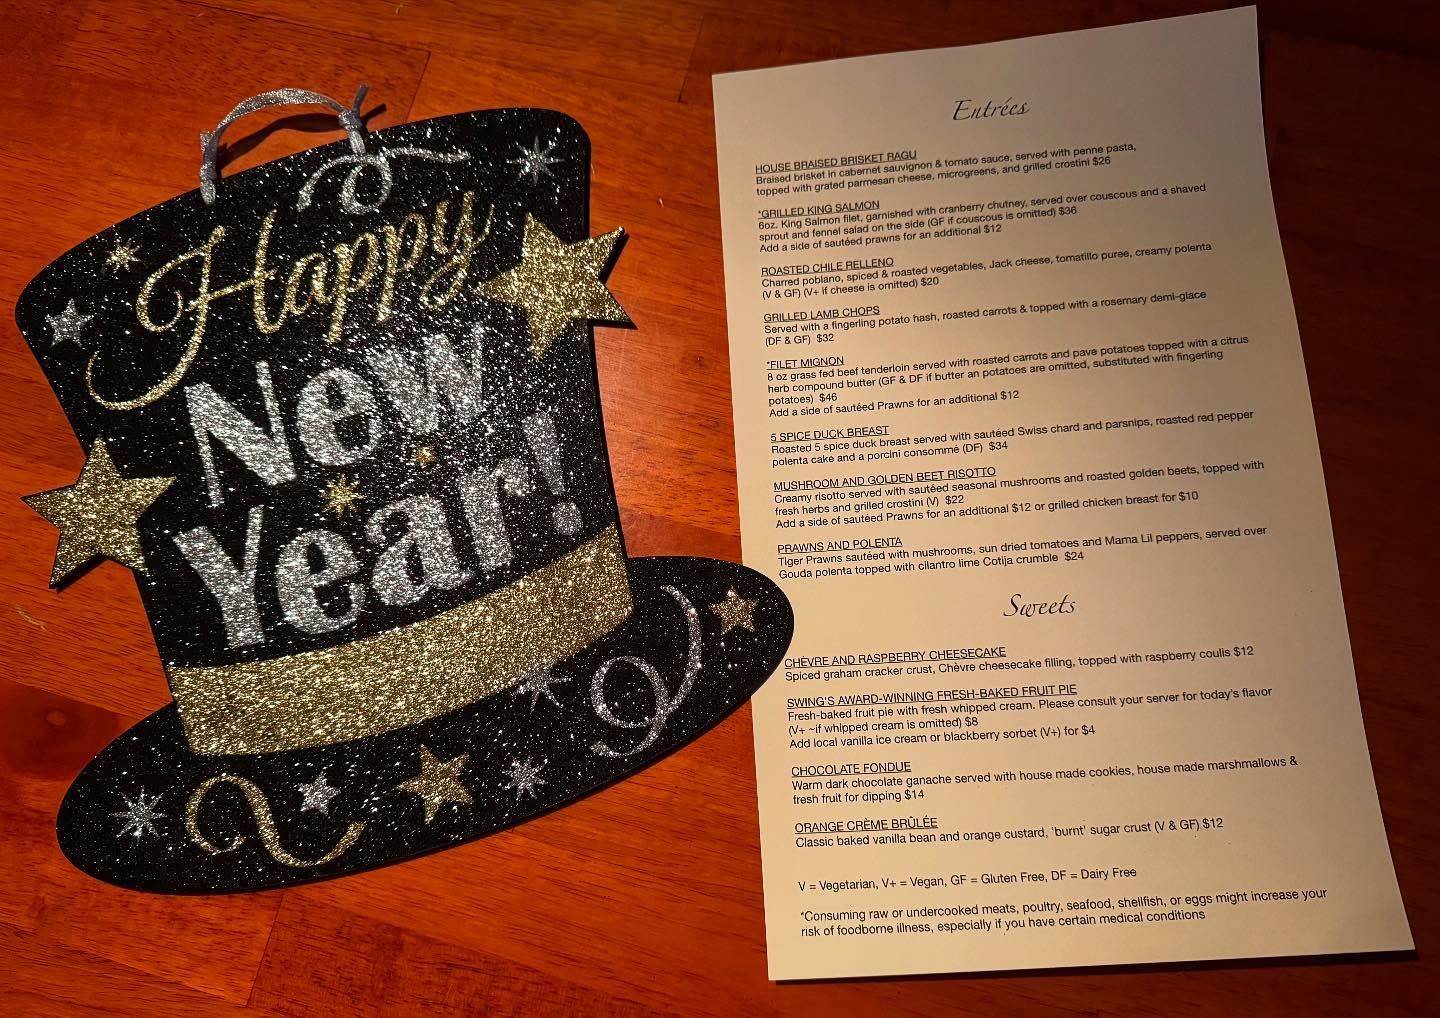 Happy
New
Year!
Entrées
HOUSE BRAISED BRISKET RAGU
Braised brisket in cabernet sauvignon & tomato sauce, served with penne pasta,
topped with grated parmesan cheese, microgreens, and grilled crostini $26
*GRILLED KING SALMON
6oz. King Salmon filet, garnished with cranberry chutney, served over couscous and a shaved
sprout and fennel salad on the side (GF if couscous is omitted) $36
Add a side of sautéed prawns for an additional $12
ROASTED CHILE RELLENO
Charred poblano, spiced & roasted vegetables, Jack cheese, tomatillo puree, creamy polenta
(V & GF) (V+ if cheese is omitted) $20
GRILLED LAMB CHOPS
Served with a fingerling potato hash, roasted carrots & topped with a rosemary demi-glace
(DF & GF) $32
*FILET MIGNON
8 oz grass fed beef tenderloin served with roasted carrots and pave potatoes topped with a citrus
herb compound butter (GF & DF if butter an potatoes are omitted, substituted with fingerling
potatoes) $46
Add a side of sautéed Prawns for an additional $12
5 SPICE DUCK BREAST
Roasted 5 spice duck breast served with sautéed Swiss chard and parsnips, roasted red pepper
polenta cake and a porcini consommé (DF) $34
MUSHROOM AND GOLDEN BEET RISOTTO
Creamy risotto served with sautéed seasonal mushrooms and roasted golden beets, topped with
fresh herbs and grilled crostini (V) $22
Add a side of sautéed Prawns for an additional $12 or grilled chicken breast for $10
PRAWNS AND POLENTA
Tiger Prawns sautéed with mushrooms, sun dried tomatoes and Mama Lil peppers, served over
Gouda polenta topped with cilantro lime Cotija crumble $24
Sweets
CHÈVRE AND RASPBERRY CHEESECAKE
Spiced graham cracker crust, Chèvre cheesecake filling, topped with raspberry coulis $12
SWING'S AWARD-WINNING FRESH-BAKED FRUIT PIE
Fresh-baked fruit pie with fresh whipped cream. Please consult your server for today's flavor
(V+ ~if whipped cream is omitted) $8
Add local vanilla ice cream or blackberry sorbet (V+) for $4
CHOCOLATE FONDUE
Warm dark chocolate ganache served with house made cookies, house made marshmallows &
fresh fruit for dipping $14
ORANGE CRÈME BRÛLÉE
Classic baked vanilla bean and orange custard, 'burnt' sugar crust (V & GF) $12
V = Vegetarian, V+ = Vegan, GF = Gluten Free, DF = Dairy Free
*Consuming raw or undercooked meats, poultry, seafood, shellfish, or eggs might increase your
risk of foodborne illness, especially if you have certain medical conditions